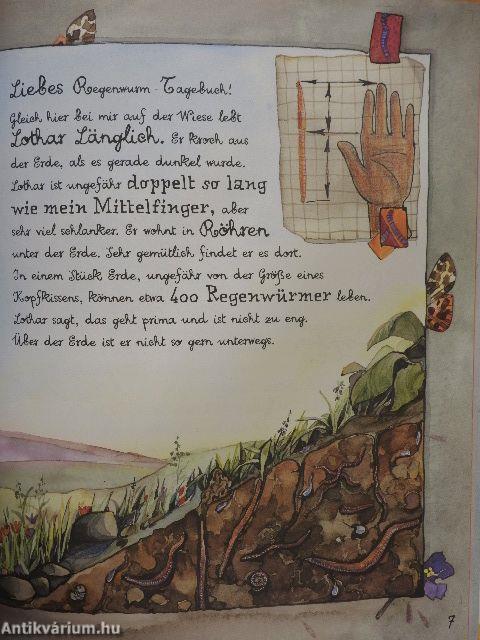 Liebes Regenwurm-Tagebuch!
Gleich hier bei mir auf der Wiese lebt
Lothar Länglich. Er kroch aus
der Erde, als es gerade dunkel wurde.
Lothar ist ungefähr doppelt so lang
wie mein Mittelfinger, aber
sehr viel schlanker. Er wohnt in Röhren
unter der Erde. Sehr gemütlich findet er es dort.
In einem Stück Erde, ungefähr von der Größe eines
Kopfkissens, können etwa 400 Regenwürmer leben.
Lothar sagt, das geht prima und ist nicht zu eng.
Über der Erde ist er nicht so gern unterwegs.
7
Antikvárium.hu